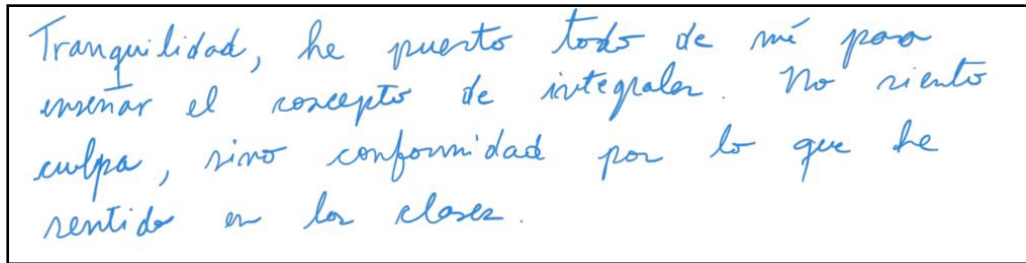 Tranquilidad, he puesto todo de mí para
enseñar el concepto de integrales. No siento
culpa, sino conformidad por lo que he
sentido en las clases.